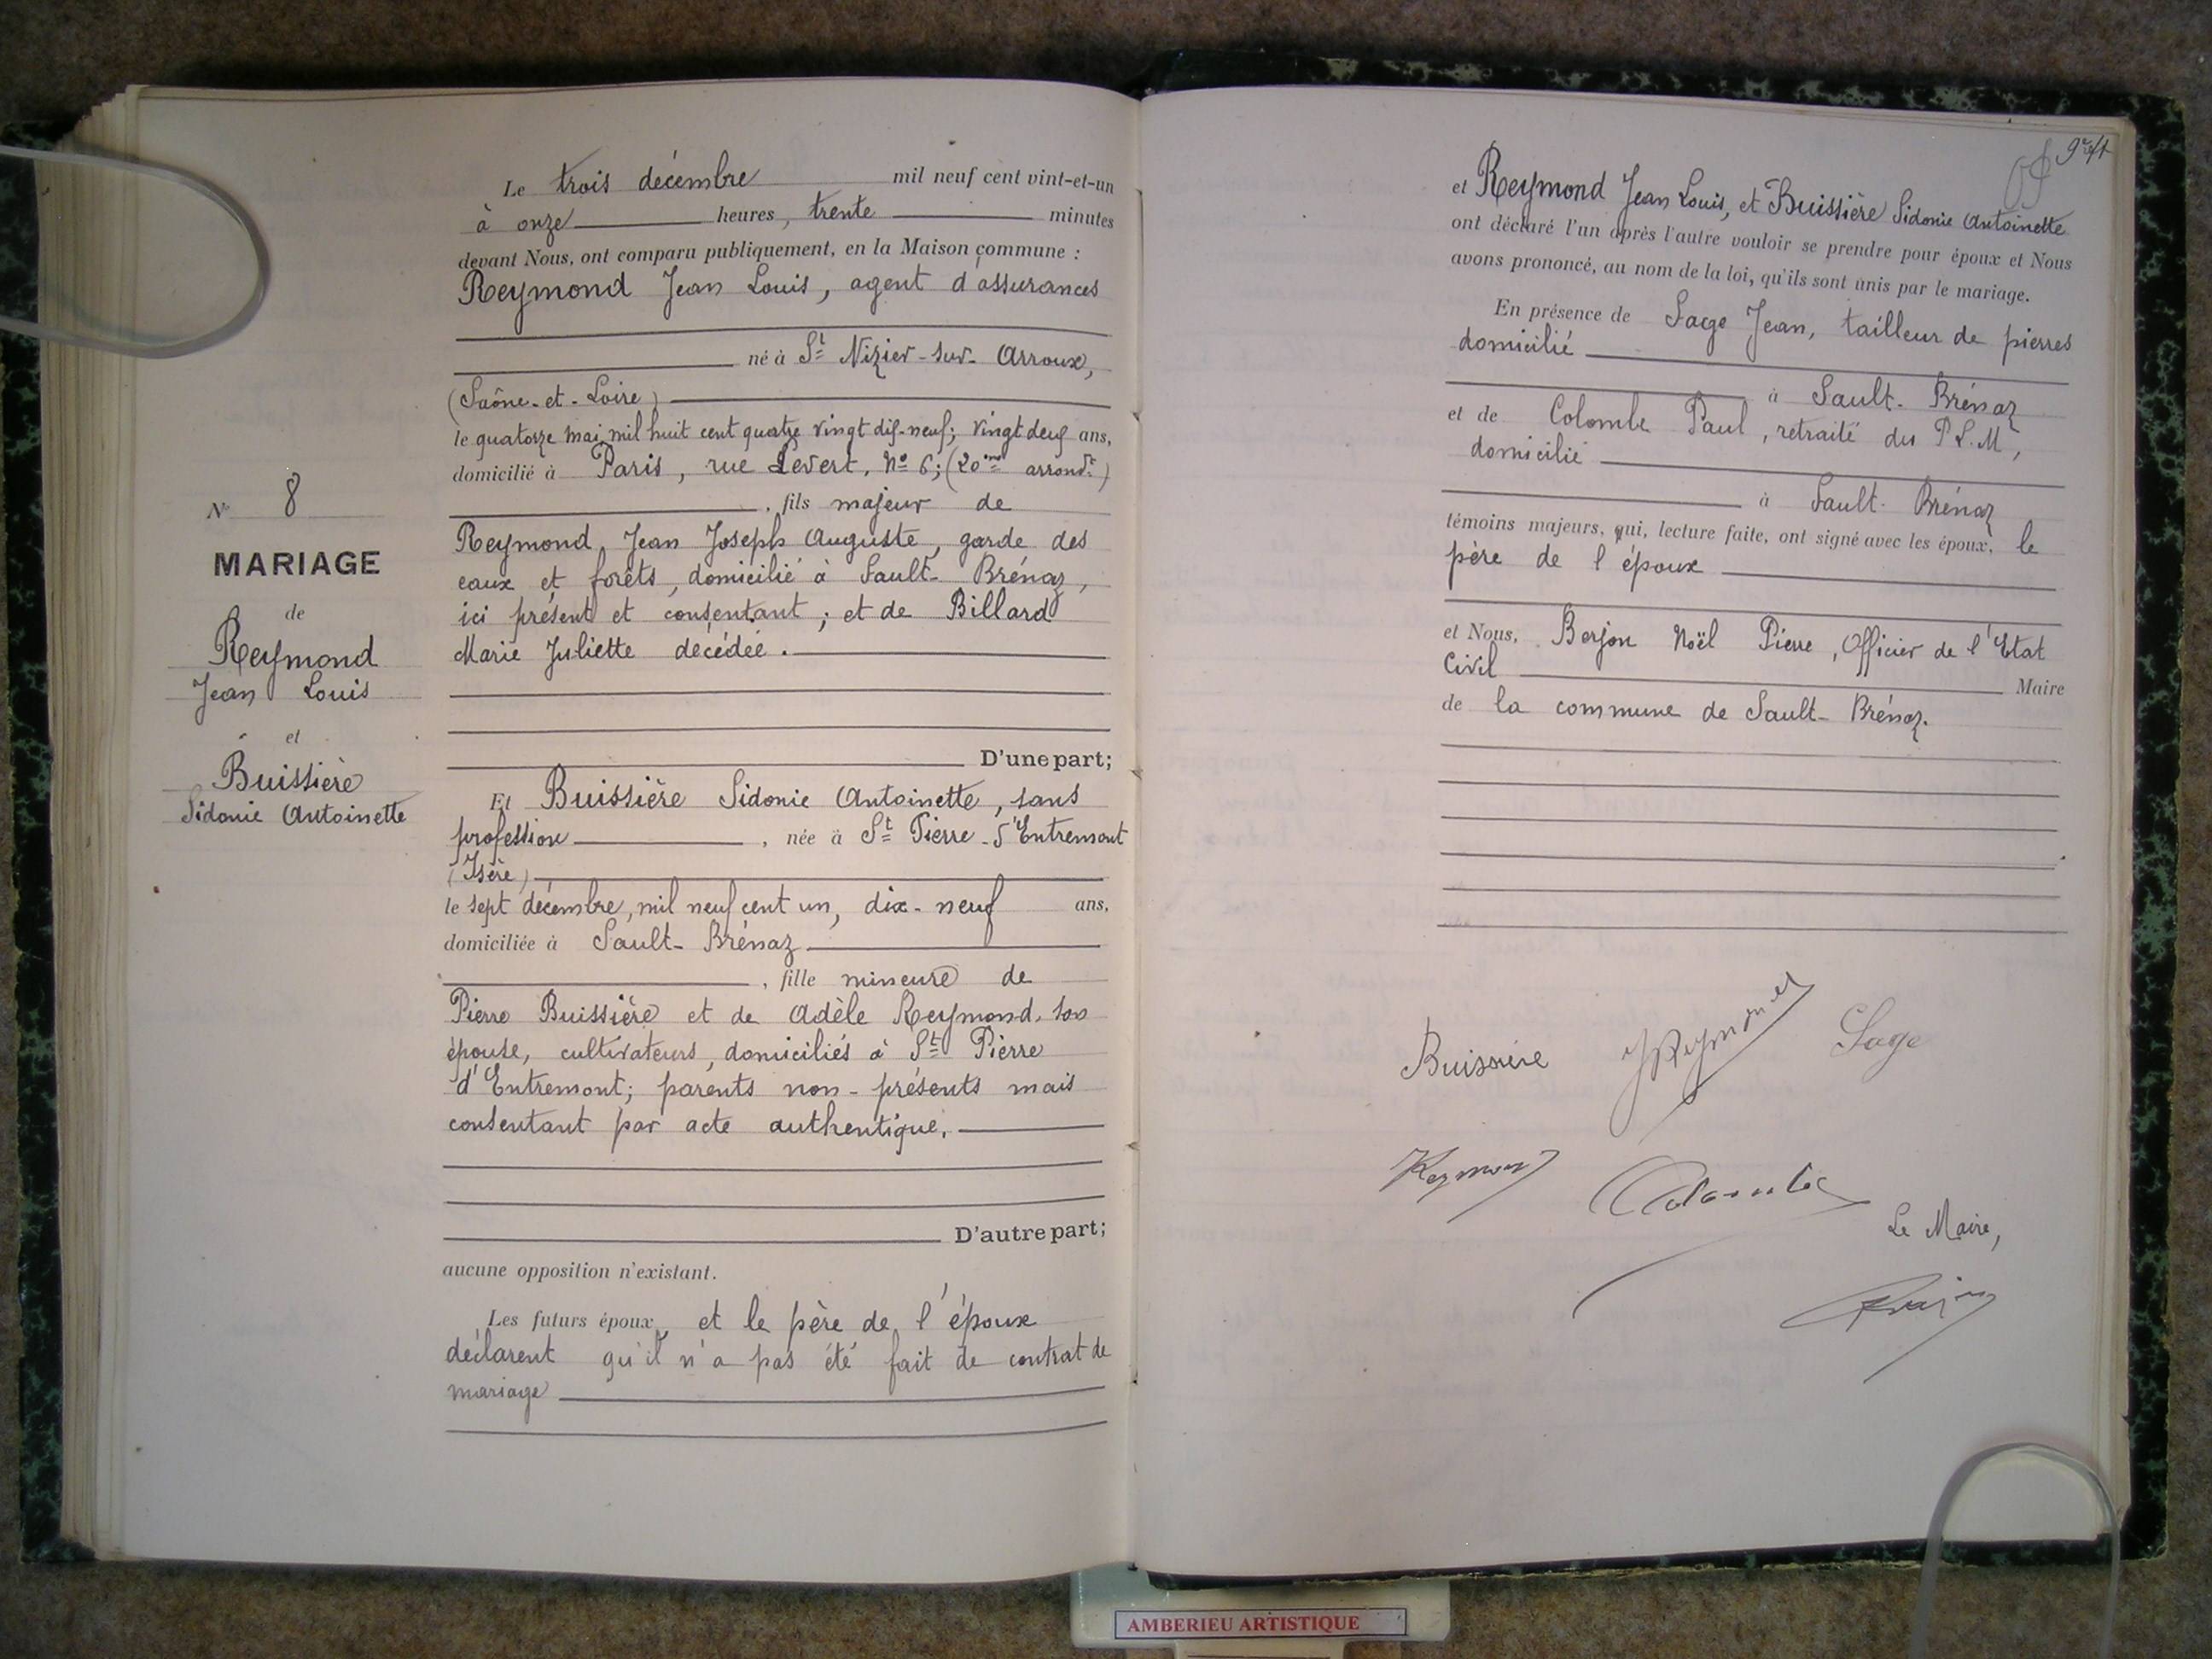 N° 8
MARIAGE
de
Reymond
Jean Louis
et
Buissière
Sidonie Antoinette
Le trois décembre mil neuf cent vint-et-un
à onze heures, trente minutes
devant Nous, ont comparu publiquement, en la Maison commune :
Reymond Jean Louis, agent d'assurances
né à St Nizier-sur-Arroux,
(Saône-et-Loire)
le quatorze mai mil huit cent quatre vingt dix-neuf; vingt deux ans,
domicilié à Paris, rue Levert, No 6; (20me arrondt)
, fils majeur de
Reymond, Jean Joseph Auguste, garde des
eaux et forêts, domicilié à Sault-Brénaz,
ici présent et consentant ; et de Billard
Marie Juliette décédée.
D'une part;
Et Buissière Sidonie Antoinette, sans
profession, née à St Pierre-d'Entremont
(Isère)
le sept décembre, mil neuf cent un, dix-neuf ans,
domiciliée à Sault-Brénaz
, fille mineure de
Pierre Buissière et de Adèle Reymond, son
épouse, cultivateurs, domiciliés à St Pierre
d'Entremont; parents non-présents mais
consentant par acte authentique.
D'autre part;
aucune opposition n'existant.
Les futurs époux, et le père de l'époux
déclarent qu'il n'a pas été fait de contrat de
mariage
et Reymond Jean Louis, et Buissière Sidonie Antoinette
ont déclaré l'un après l'autre vouloir se prendre pour époux et Nous
avons prononcé, au nom de la loi, qu'ils sont unis par le mariage.
En présence de Sage Jean, tailleur de pierres
domicilié
à Sault-Brénaz
et de Colombe Paul, retraité du P.L.M,
domicilié
à Sault-Brénaz
témoins majeurs, qui, lecture faite, ont signé avec les époux, le
père de l'époux
et Nous, Berjon Noël Pierre, Officier de l'Etat
Civil Maire
de la commune de Sault-Brénaz.
Buissière JReymond Sage
Reymond Colombe
Le Maire,
AMBERIEU ARTISTIQUE